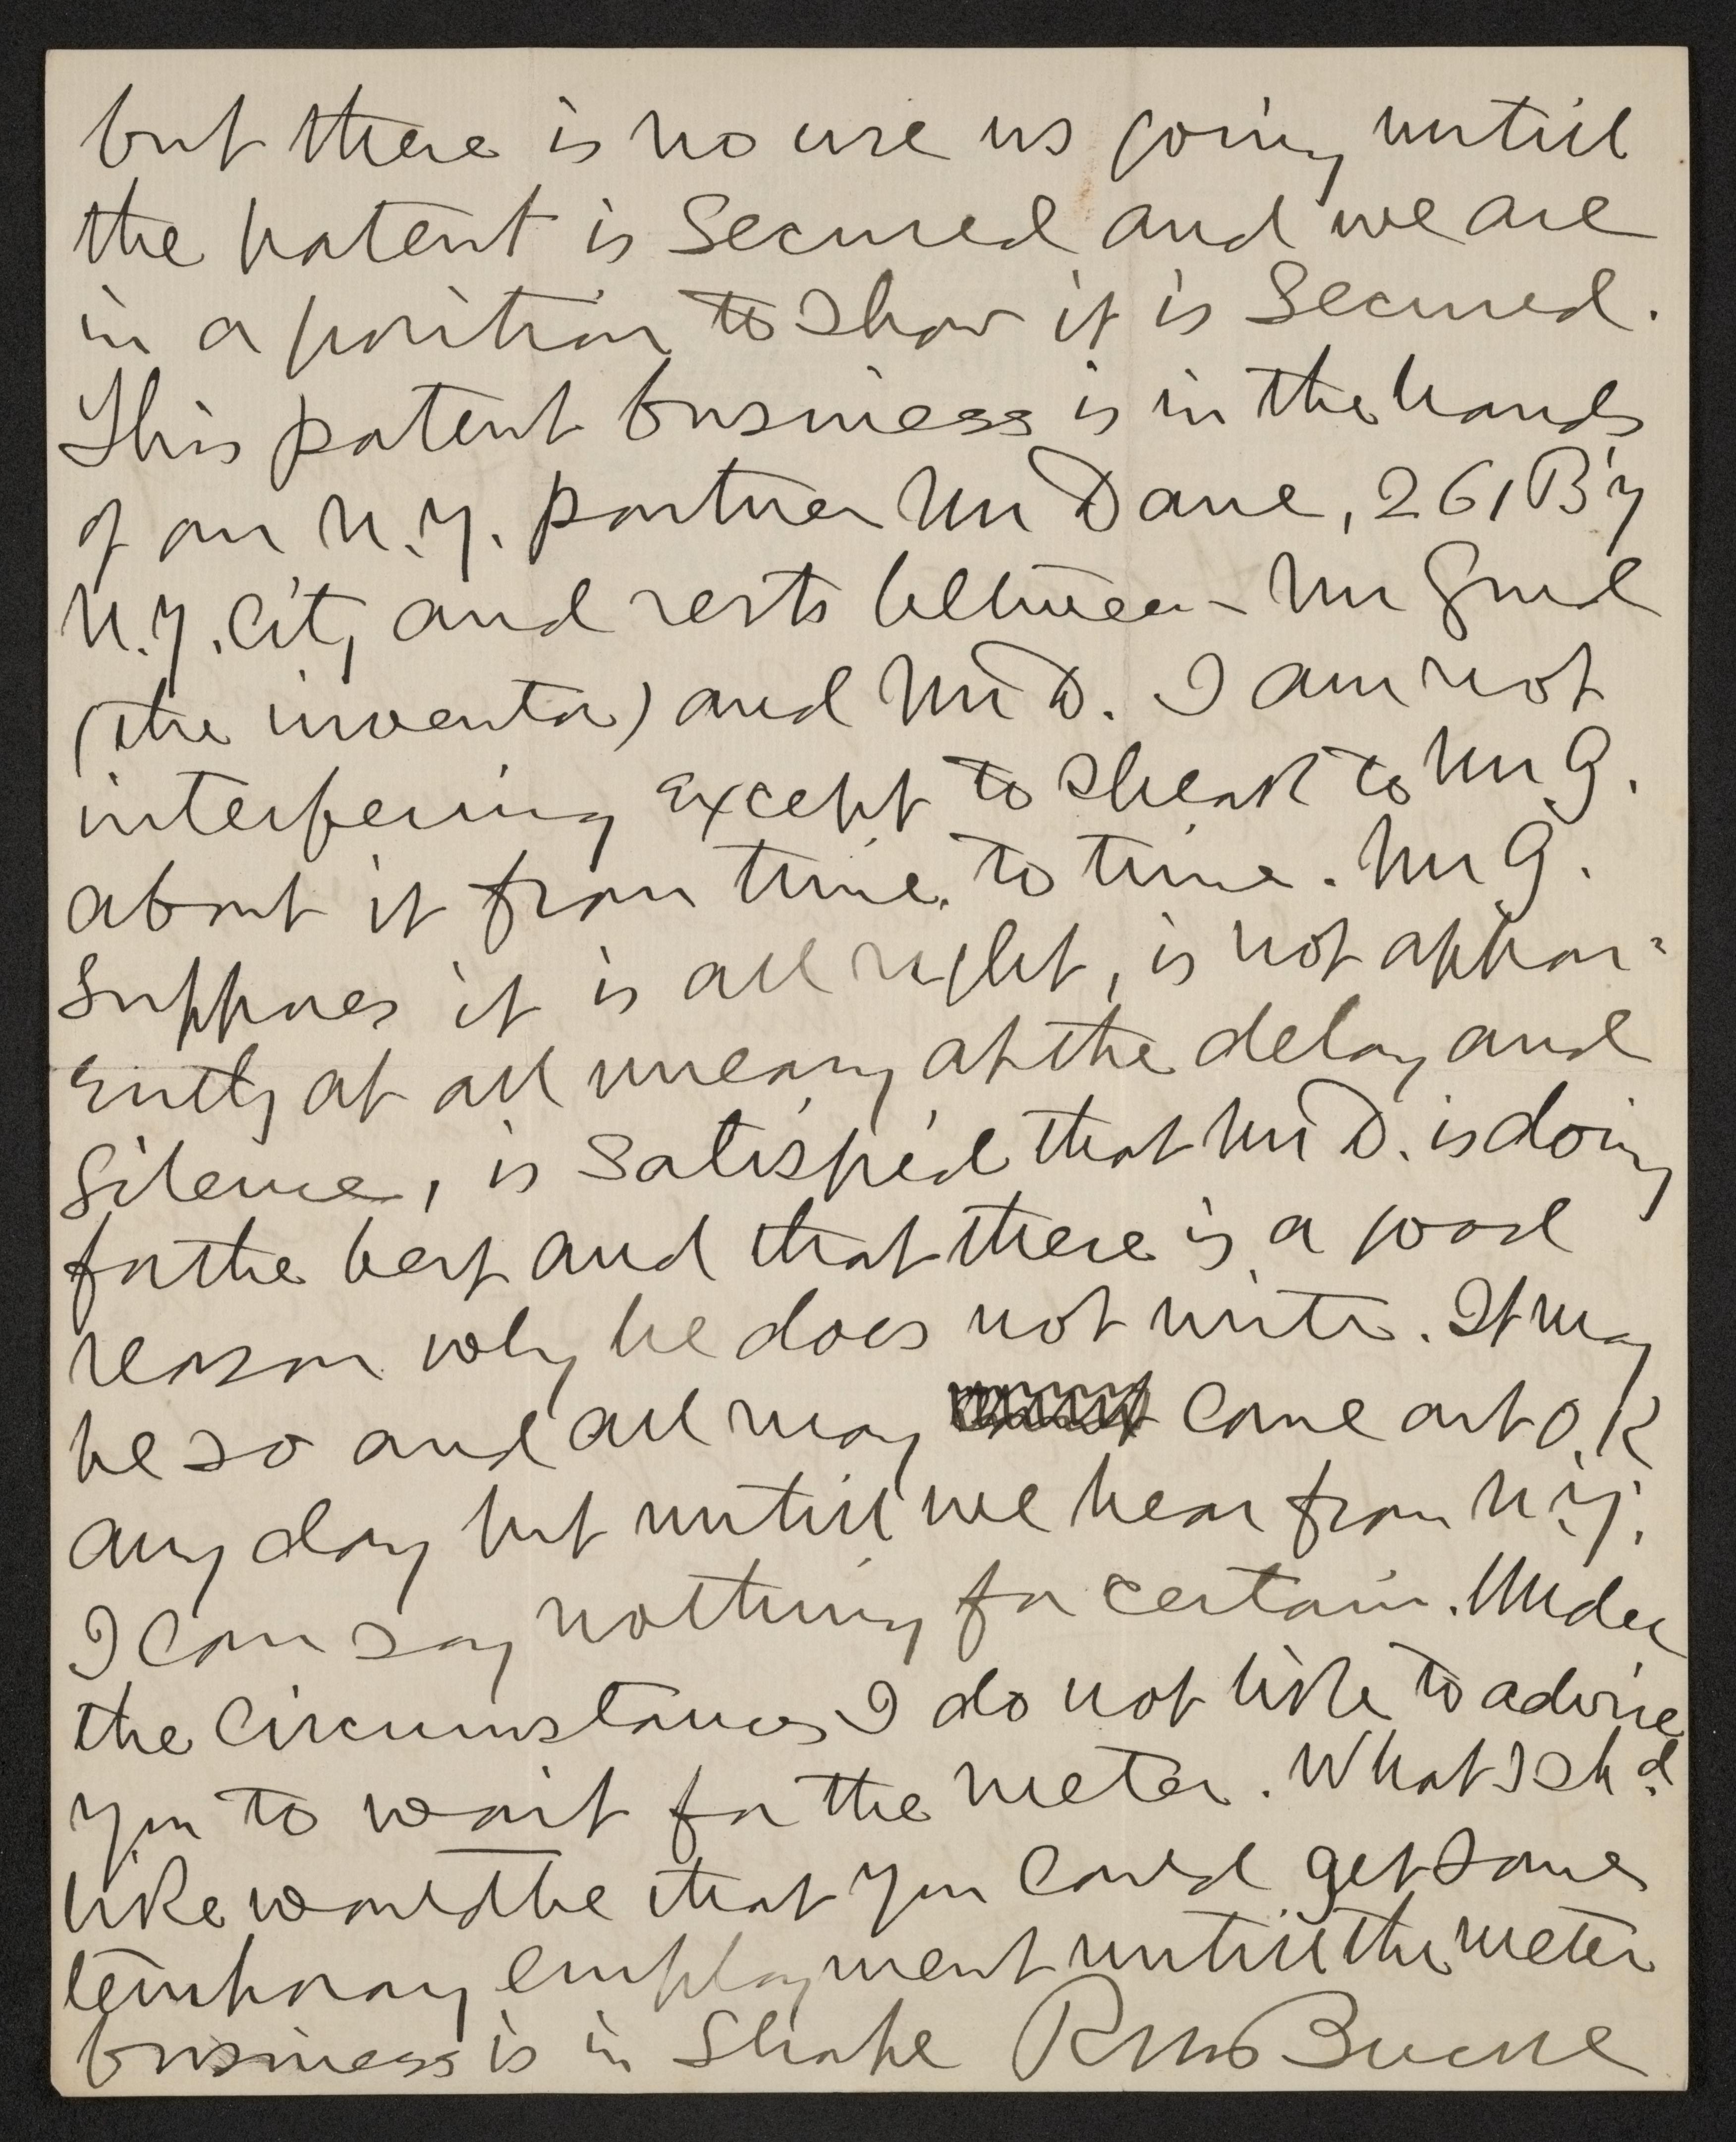 but there is no use us going untill
the patent is secured and we are
in a position to show it is secured.
This patent business is in the hands
of our N.Y. partner Mr Dane, 261 B'y
N.Y. City and rests between - Mr Gurd
(the inventor) and Mr D. I am not
interfering except to speak to Mr G.
about it from time to time. Mr G.
supposes it is all right, is not appar-
ently at all uneasy at the delay and
silence, is satisfied that Mr D. is doing
for the best and that there is a good
reason why he does not write. It may
be so and all may come out O.K
any day but untill we hear from N.Y.
I can say nothing for certain. Under
the circumstances I do not like to advise
you to wait for the meter. What I sh d
like would be that you could get some
temporary employment untill the meter
business is in shape RM Bucke